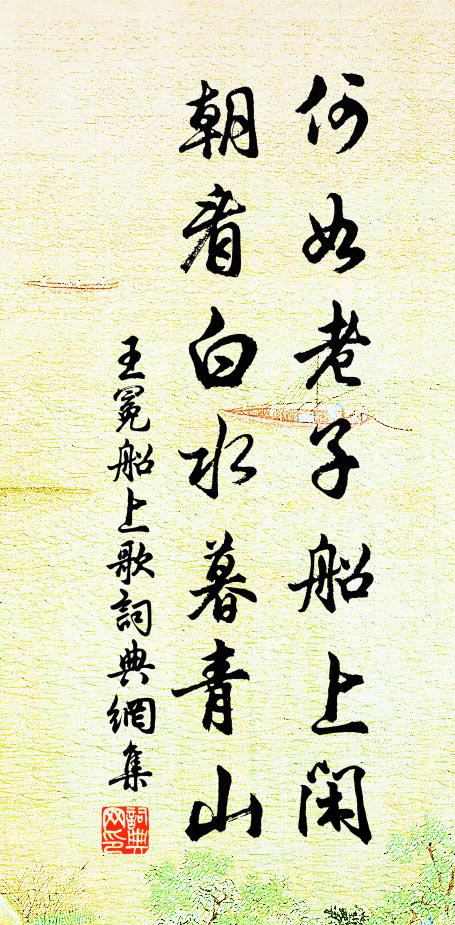 何如老子船上閑
朝看白水暮青山
王冕船上歌詞典網集
詞典
網印